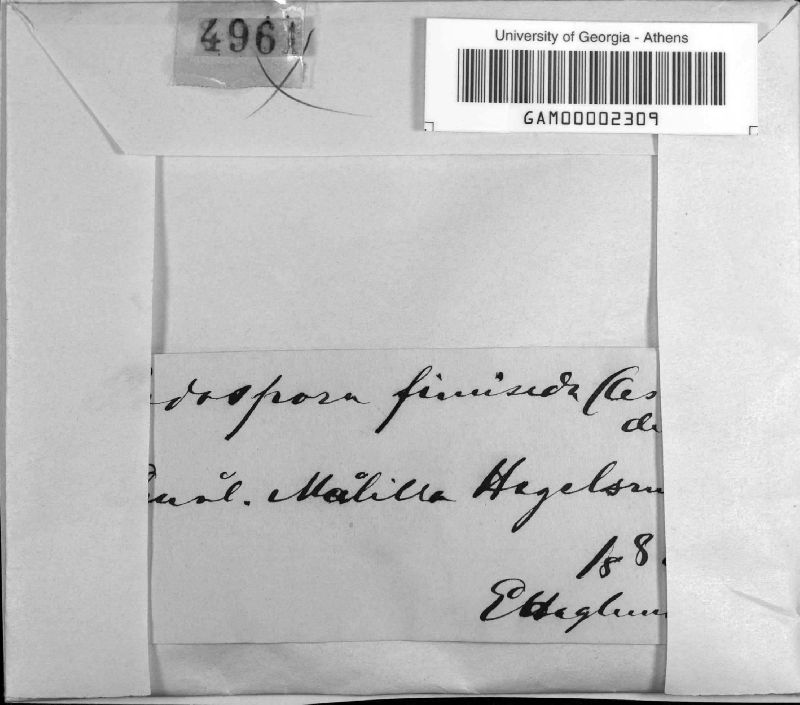 4961
University of Georgia - Athens
GAM00002309
dospora fimiseda (Ces
de
Smål. Målilla Hagelsru
188
E Haglun